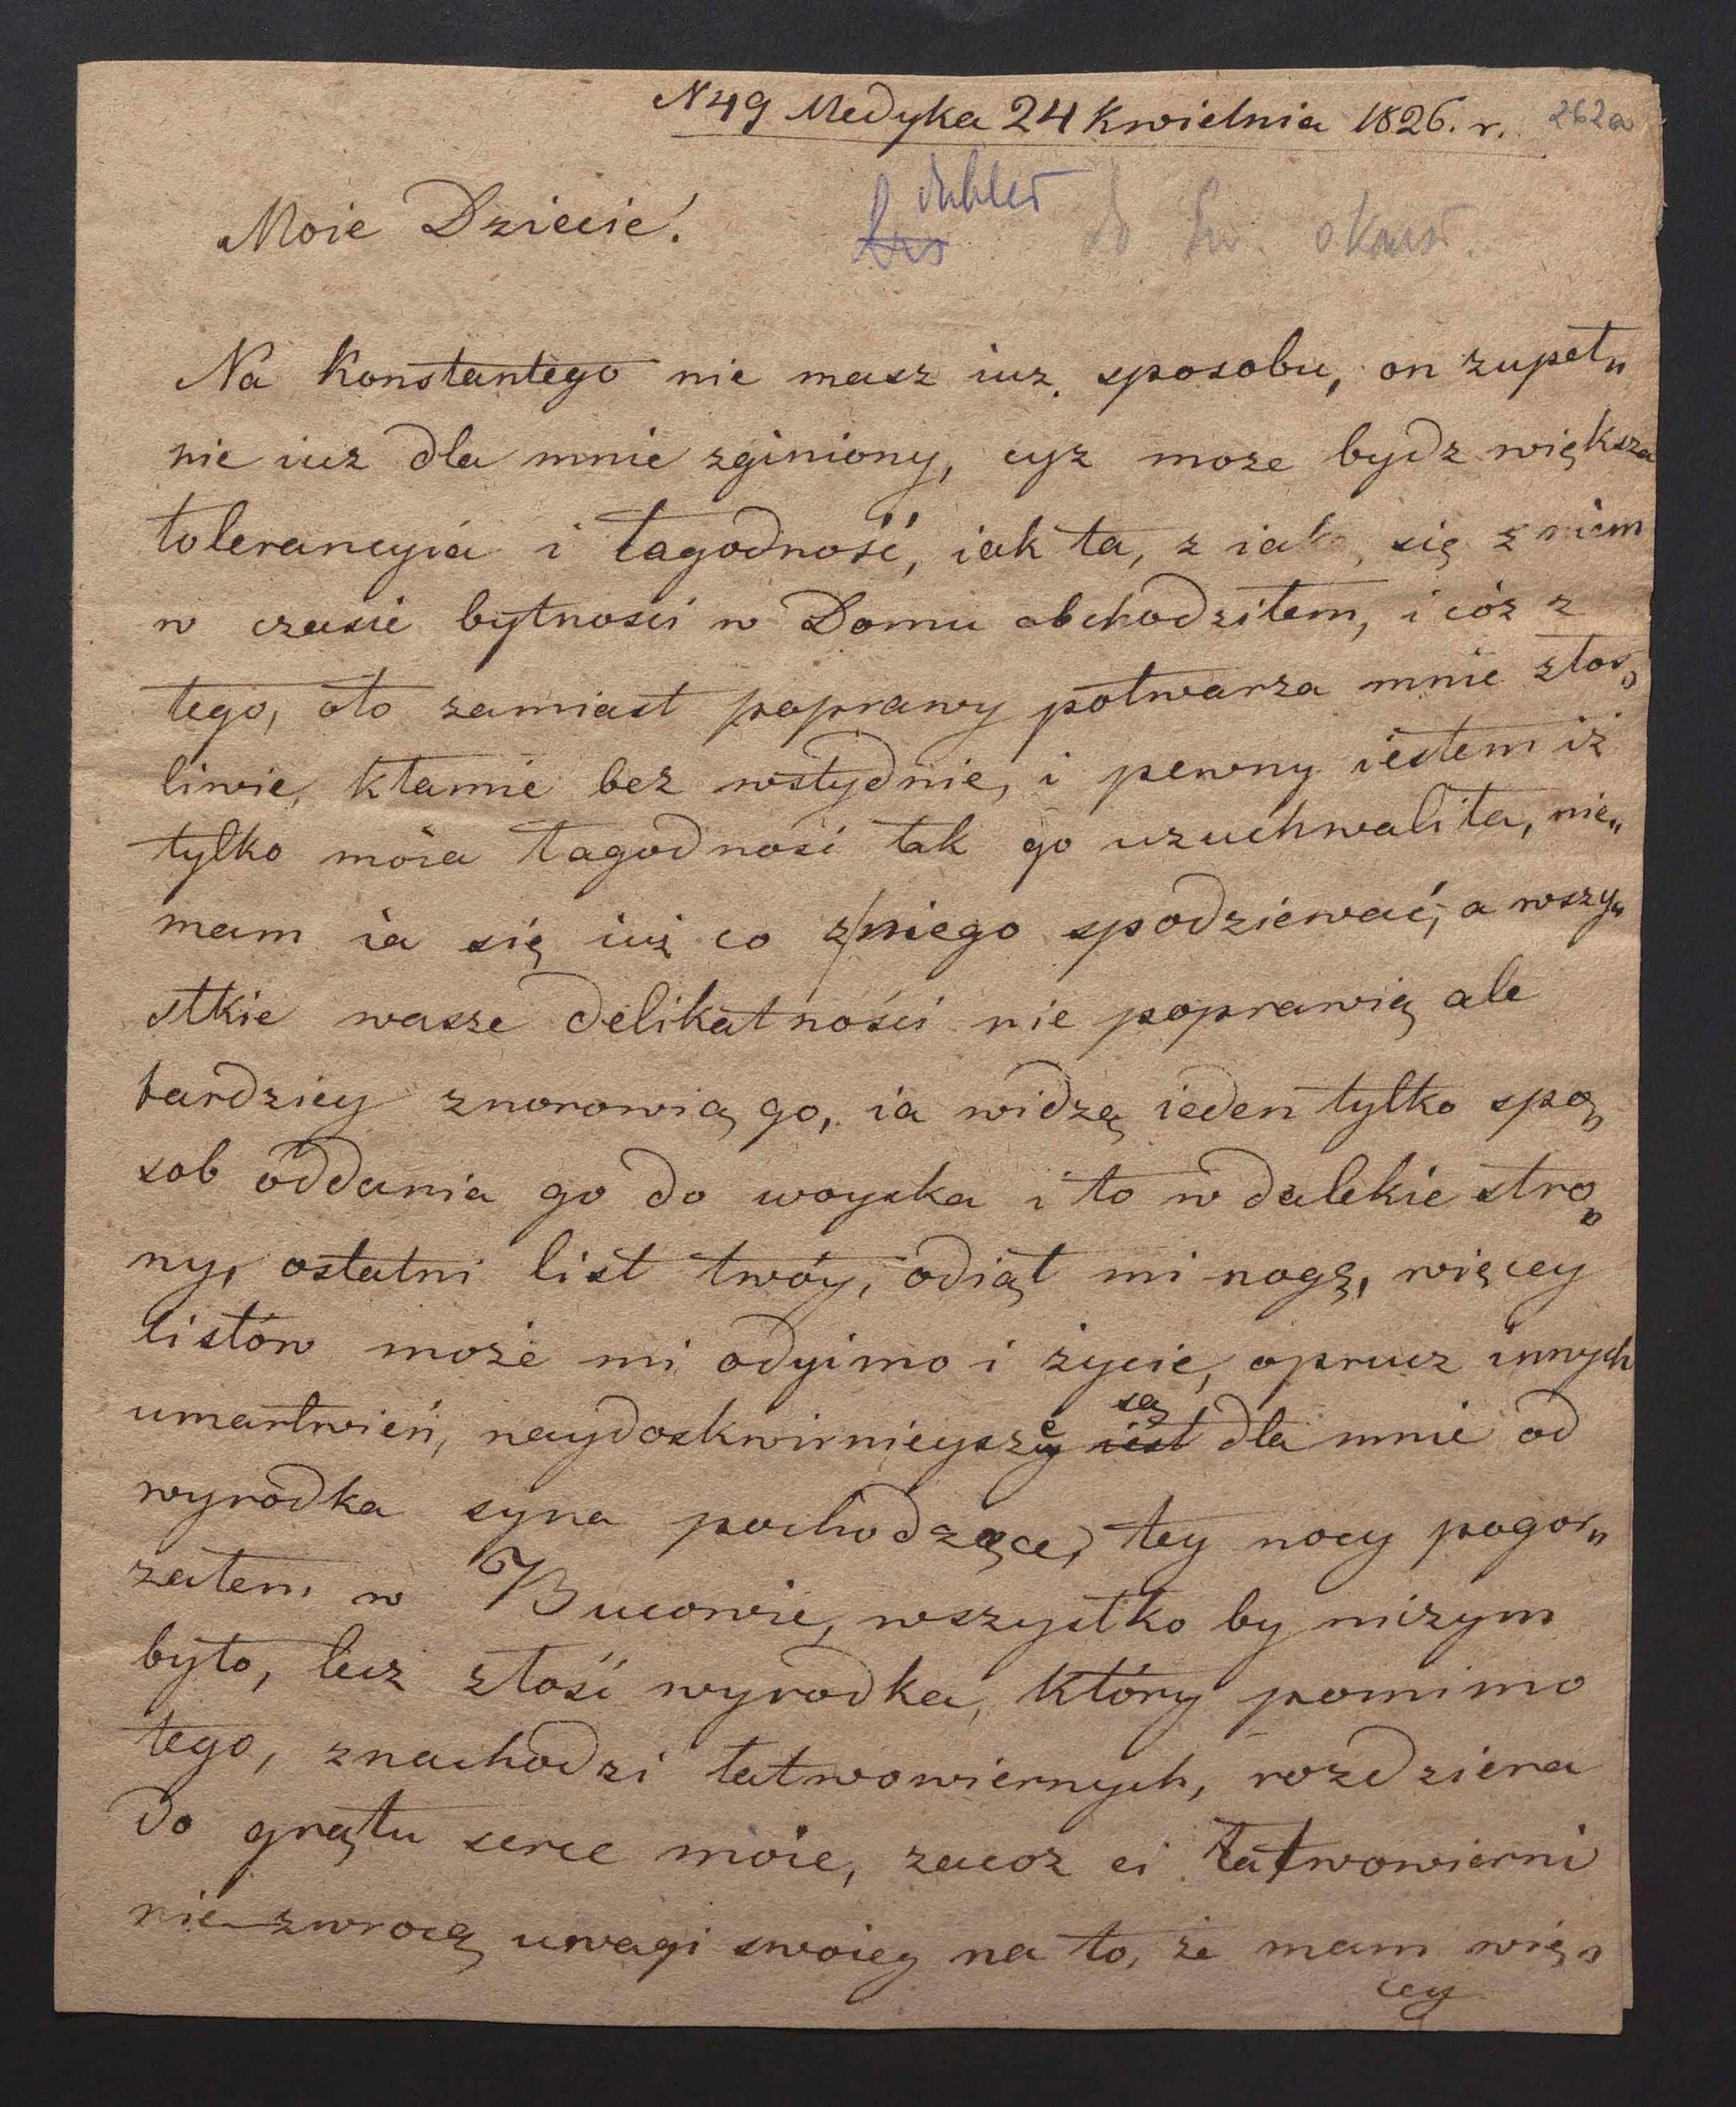 N 49 Medyka 24 Kwietnia 1826. r. 262a
dublet
Moie Dziecie! do
Na Konstantego nie masz iuz sposobu, on zupeł„
nie iuz dla mnie zginiony, cyz moze bydz większa
tolerancyia i łagodność, iak ta, z iaką się z niem
w czasie bytnosci w Domu obchodziłem, i cóz z
tego, oto zamiast poprawy potwarza mnie złos„
liwie, kłamie bez wstydnie, i pewny iestem iż
tylko moia łagodność tak go uzuchwaliła, nie„
mam ia się iuż co z/niego spodziewać, a wszy„
stkie wasze delikatności nie poprawią ale
bardziey znorowią go, ia widzę ieden tylko spo„
sob oddania go do woyska i to w dalekie stro„
ny, ostatni list twóy, odiął mi nogę, więcey
listów może mi odyimo i życie, oprucz innych
umartwień, naydoskwirnieysze są dla mnie od
wyrodka syna pochodzące, tey nocy pogor„
załem w Bucowie, wszystko by niczym
było, lecz złość wyrodka, który pomimo
tego, znachodzi łatwowiernych, rozdziera
do grątu serce moie, zacoz ci łatwowierni
nie zwrocą uwagi swoiey na to, że mam wię„
cey